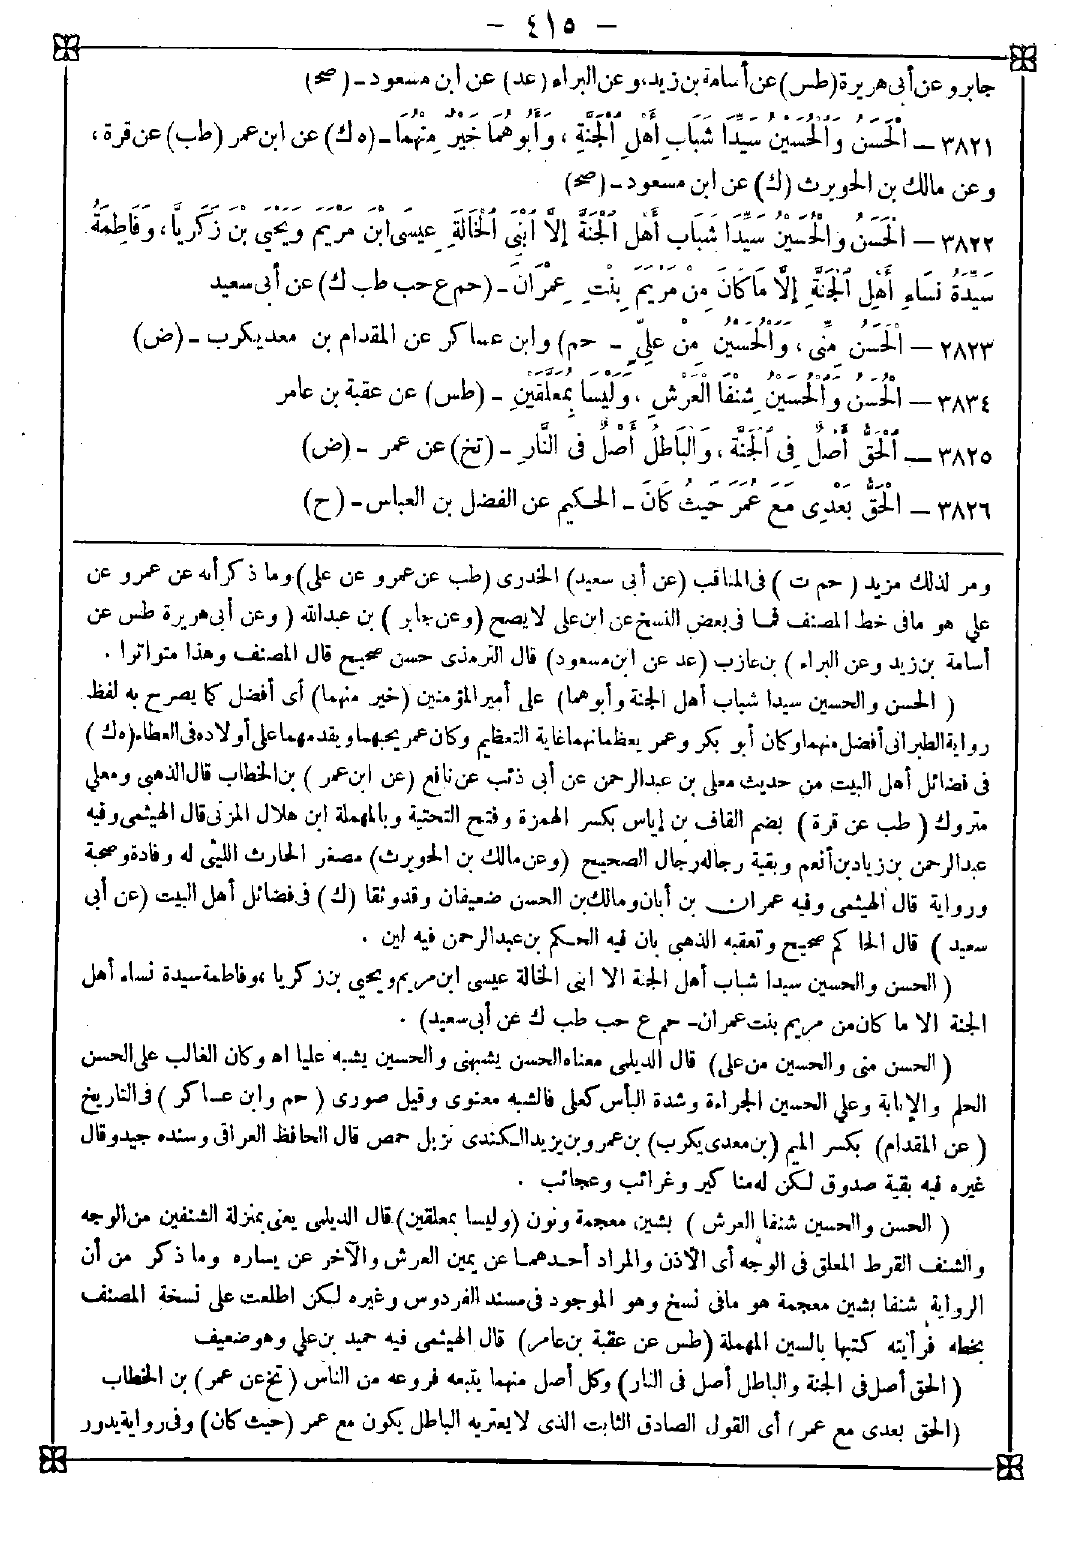 — ٤١٥ —
جابر وعن أبى هريرة (طس) عن أسامة بن زيد، وعن البراء (عد) عن ابن مسعود - (صح)
٣٨٢١ — الْحَسَنُ وَالْحُسَيْنُ سَيِّدَا شَبَابِ أَهْلِ الْجَنَّةِ ، وَأَبُوهُمَا خَيْرٌ مِنْهُمَا - (ه ك) عن ابن عمر (طب) عن قرة ،
وعن مالك بن الحويرث (ك) عن ابن مسعود - (صح)
٣٨٢٢ — الْحَسَنُ وَالْحُسَيْنُ سَيِّدَا شَبَابِ أَهْلِ الْجَنَّةِ إِلَّا ابْنَىِ الْخَالَةِ عِيسَى ابْنَ مَرْيَمَ وَيَحْيَى بْنَ زَكَرِيَّا ، وَفَاطِمَةُ
سَيِّدَةُ نِسَاءِ أَهْلِ الْجَنَّةِ إِلَّا مَا كَانَ مِنْ مَرْيَمَ بِنْتِ عِمْرَانَ - (حم ع حب طب ك) عن أبى سعيد
٢٨٢٣ — الْحَسَنُ مِنِّى ، وَالْحُسَيْنُ مِنْ عَلِيٍّ - حم) وابن عساكر عن المقدام بن معديكرب - (ض)
٣٨٣٤ — الْحَسَنُ وَالْحُسَيْنُ شِنْفَا الْعَرْشِ ، وَلَيْسَا بِمُعَلَّقَيْنِ - (طس) عن عقبة بن عامر
٣٨٢٥ — الْحَقُّ أَصْلٌ فِى الْجَنَّةِ ، وَالْبَاطِلُ أَصْلٌ فى النَّارِ - (تخ) عن عمر - (ض)
٣٨٢٦ — الْحَقُّ بَعْدِى مَعَ عُمَرَ حَيْثُ كَانَ - الحكيم عن الفضل بن العباس - (ح)
ومر لذلك مزيد ( حم ت ) فى المناقب (عن أبى سعيد) الخدرى (طب عن عمرو عن على) وما ذكر أنه عن عمرو عن
على هو مافى خط المصنف فما فى بعض النسخ عن ابن على لا يصح (وعن جابر ) بن عبدالله ( وعن أبى هريرة طس عن
أسامة بن زيد وعن البراء ) بن عازب (عد عن ابن مسعود) قال الترمذى حسن صحيح قال المصنف وهذا متواترا .
( الحسن والحسين سيدا شباب أهل الجنة وأبوهما) على أمير المؤمنين (خير منهما) أى أفضل كما يصرح به لفظ
رواية الطبرانى أفضل منهما وكان أبو بكر وعمر يعظمانهما غاية التعظيم وكان عمر يحبهما ويقدمهما على أولاده فى العطاء (ه ك )
فى فضائل أهل البيت من حديث معلى بن عبدالرحمن عن أبى ذئب عن نافع (عن ابن عمر ) بن الخطاب قال الذهبى ومعلى
متروك ( طب عن قرة ) بضم القاف بن إياس بكسر الهمزة وفتح التحتية وبالمهملة ابن هلال المزنى قال الهيثمى وفيه
عبدالرحمن بن زياد بن أنعم وبقية رجاله رجال الصحيح (وعن مالك بن الحويرث) مصغر الحارث الليثى له وفادة وصحبة
ورواية قال الهيثمى وفيه عمران بن أبان ومالك بن الحسن ضعيفان وقد وثقا (ك) فى فضائل أهل البيت (عن أبى
سعيد ) قال الحاكم صحيح وتعقبه الذهبى بان فيه الحكم بن عبدالرحمن فيه لين .
( الحسن والحسين سيدا شباب أهل الجنة الا ابنى الخالة عيسى ابن مريم ويحيى بن زكريا ، وفاطمة سيدة نساء أهل
الجنة الا ما كان من مريم بنت عمران - حم ع حب طب ك عن أبى سعيد) .
( الحسن منى والحسين من على) قال الديلمى معناه الحسن يشبهنى والحسين يشبه عليا اه وكان الغالب على الحسن
الحلم والإنابة وعلى الحسين الجراءة وشدة البأس كعلى فالشبه معنوى وقيل صورى ( حم وابن عساكر ) فى التاريخ
( عن المقدام) بكسر الميم (بن معدى يكرب) بن عمرو بن يزيد الكندى نزيل حمص قال الحافظ العراقى وسنده جيد وقال
غيره فيه بقية صدوق لكن له مناكير وغرائب وعجائب .
( الحسن والحسين شنفا العرش ) بشين معجمة ونون (وليسا بمعلقين) قال الديلمى يعنى بمنزلة الشنفين من الوجه
والشنف القرط المعلق فى الوجه أى الأذن والمراد أحدهما عن يمين العرش والآخر عن يساره وما ذكر من أن
الرواية شنفا بشين معجمة هو مافى نسخ وهو الموجود فى مسند الفردوس وغيره لكن اطلعت على نسخة المصنف
بخطه فرأيته كتبها بالسين المهملة (طس عن عقبة بن عامر) قال الهيثمى فيه حميد بن على وهو ضعيف
( الحق أصل فى الجنة والباطل أصل فى النار) وكل أصل منهما يتبعه فروعه من الناس ( تخ عن عمر ) بن الخطاب
(الحق بعدى مع عمر) أى القول الصادق الثابت الذى لا يعتريه الباطل يكون مع عمر (حيث كان) وفى رواية يدور